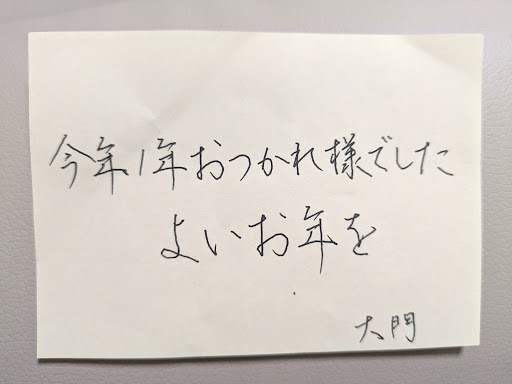 今年1年おつかれ様でした
よいお年を
大門